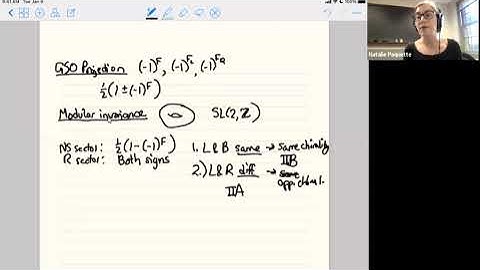 9:41 AM Tue Jan 5
GSO Projection (-1)^F, (-1)^{F_L}, (-1)^{F_R}
½(1±(-1)^F)
Modular invariance SL(2,ℤ)
NS sector: ½(1-(-1)^F)
R sector: Both signs
1. L&B same → same chirality
IIB
2.) L&R diff → same
opp chiral.
IIA
Natalie Paquette